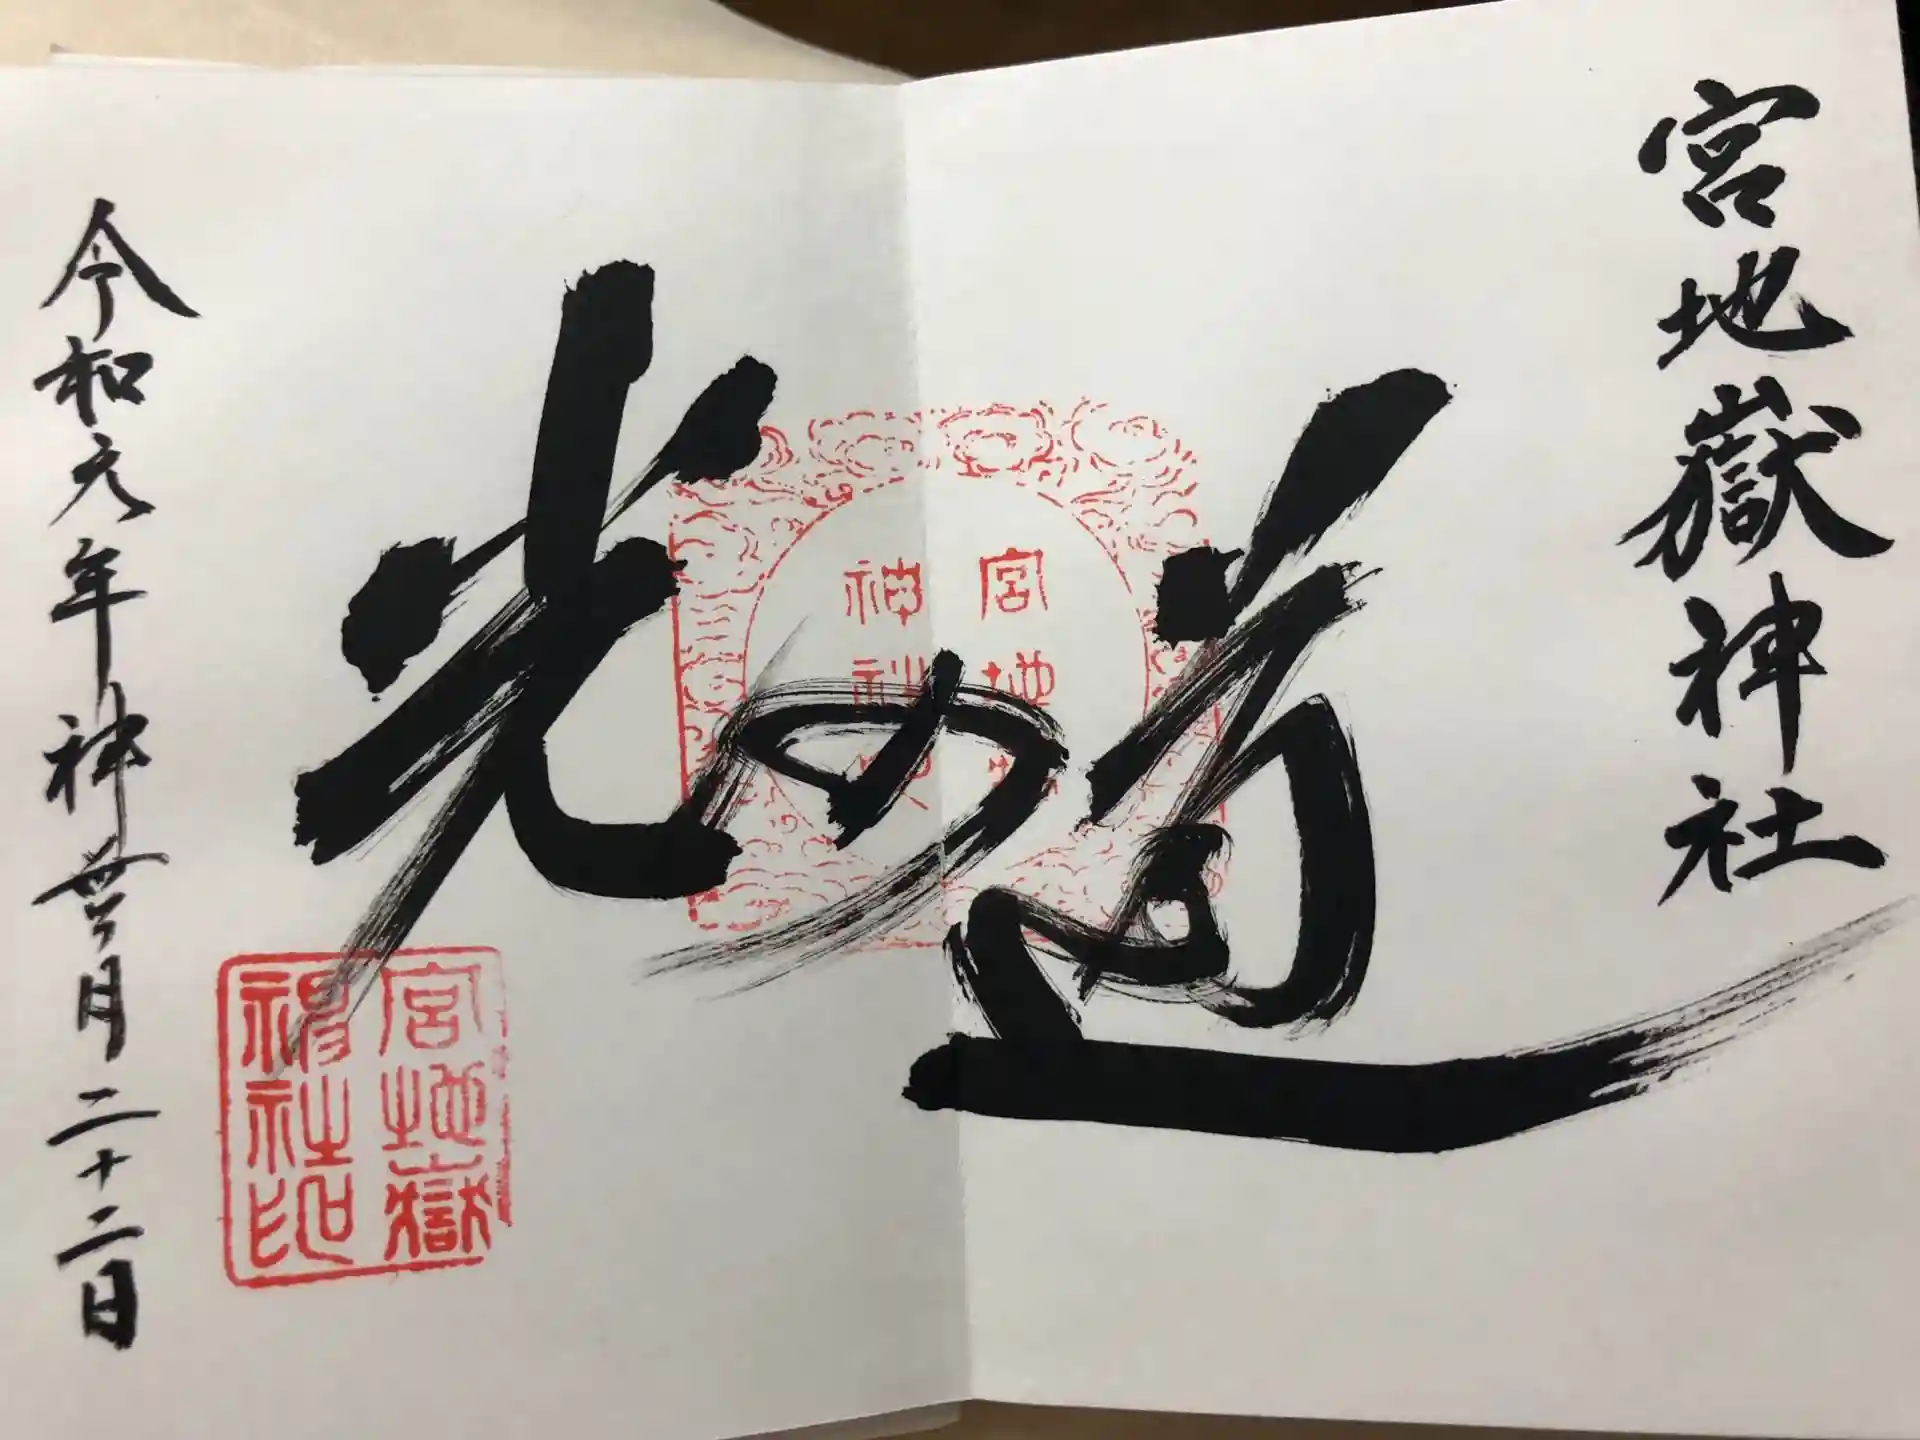 宮地嶽神社
光の道
宮地
神社
令和元年神無月二十二日
宮地嶽
神社印